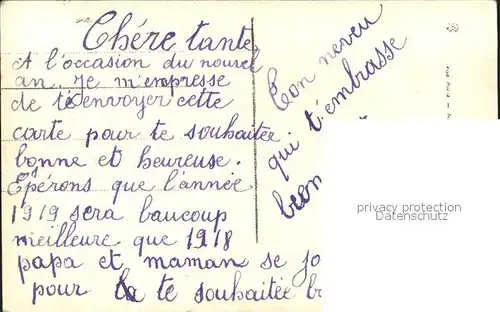 Chére tante
A l'occasion du nouvel
an, Je m'empresse
de t'envoyer cette
carte pour te souhaiter
bonne et heureuse.
Epérons que l'année
1919 sera baucoup
meilleure que 1918
papa et maman se jo
pour te souhaitée b
Ton neveu
qui t'embrasse
privacy protection
Datenschutz